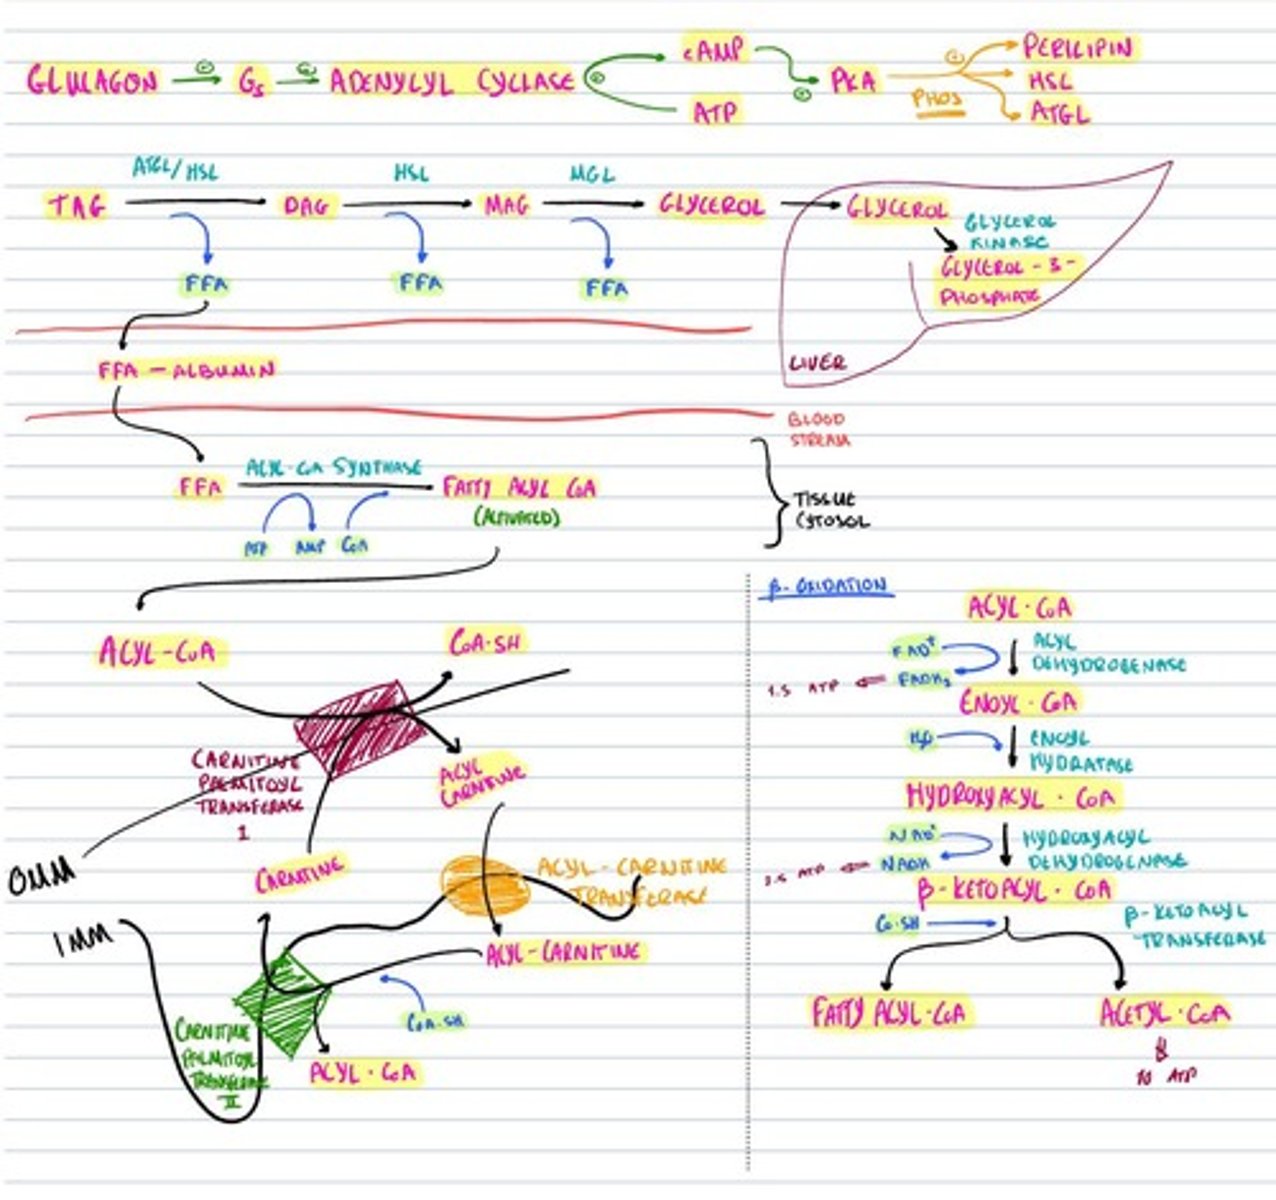 GLUCAGON Gs ADENYLYL CYCLASE cAMP PKA PERILIPIN
ATP PHOS HSL
ATGL
ATGL/HSL HSL MGL
TAG DAG MAG GLYCEROL GLYCEROL
GLYCEROL
KINASE
FFA FFA FFA
GLYCEROL-3-
PHOSPHATE
LIVER
FFA-ALBUMIN
BLOOD
STREAM
ACYL-COA SYNTHASE
FFA FATTY ACYL COA
(ACTIVATED)
ATP AMP COA
TISSUE
CYTOSOL
ACYL-COA COA-SH
CARNITINE
PALMITOYL
TRANSFERASE
I
ACYL
CARNITINE
OMM
CARNITINE
ACYL-CARNITINE
TRANSFERASE
IMM
ACYL-CARNITINE
COA-SH
CARNITINE
PALMITOYL
TRANSFERASE
II
ACYL-COA
β-OXIDATION
ACYL-COA
FAD+
ACYL
DEHYDROGENASE
1.5 ATP FADH2
ENOYL-COA
H2O
ENOYL
HYDRATASE
HYDROXYACYL-COA
NAD+
HYDROXYACYL
DEHYDROGENASE
ATP NADH
β-KETOACYL-COA
COSH
β-KETOACYL
TRANSFERASE
FATTY ACYL-COA ACETYL-COA
10 ATP